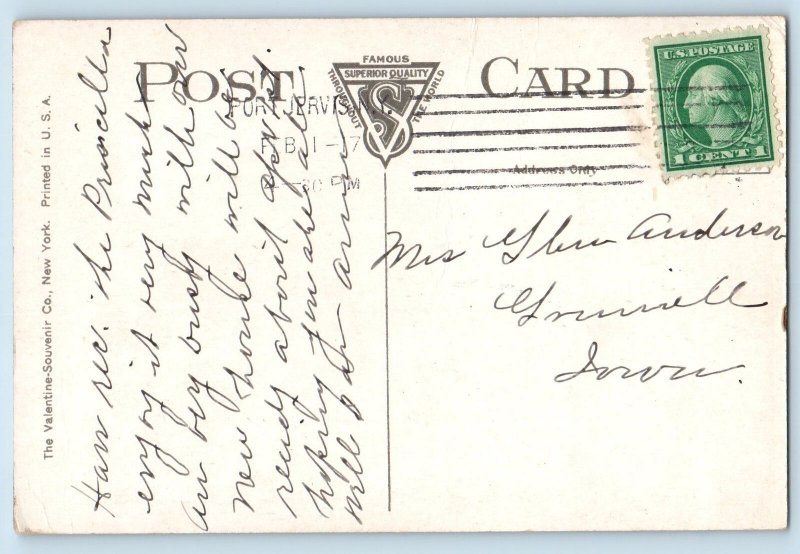 POST CARD
FAMOUS
SUPERIOR QUALITY
THROUGHOUT THE WORLD
VS
PORT JERVIS, N.Y.
FEB 1-17
30 PM
Address Only
U.S. POSTAGE
1 CENT 1
Mrs Glenn Anderson
Grinnell
Iowa
The Valentine-Souvenir Co., New York. Printed in U. S. A.
Have rec. the Priscilla
enjoy it very much
are very busy with our
new house will be
ready about April 1
hoping you are all
well